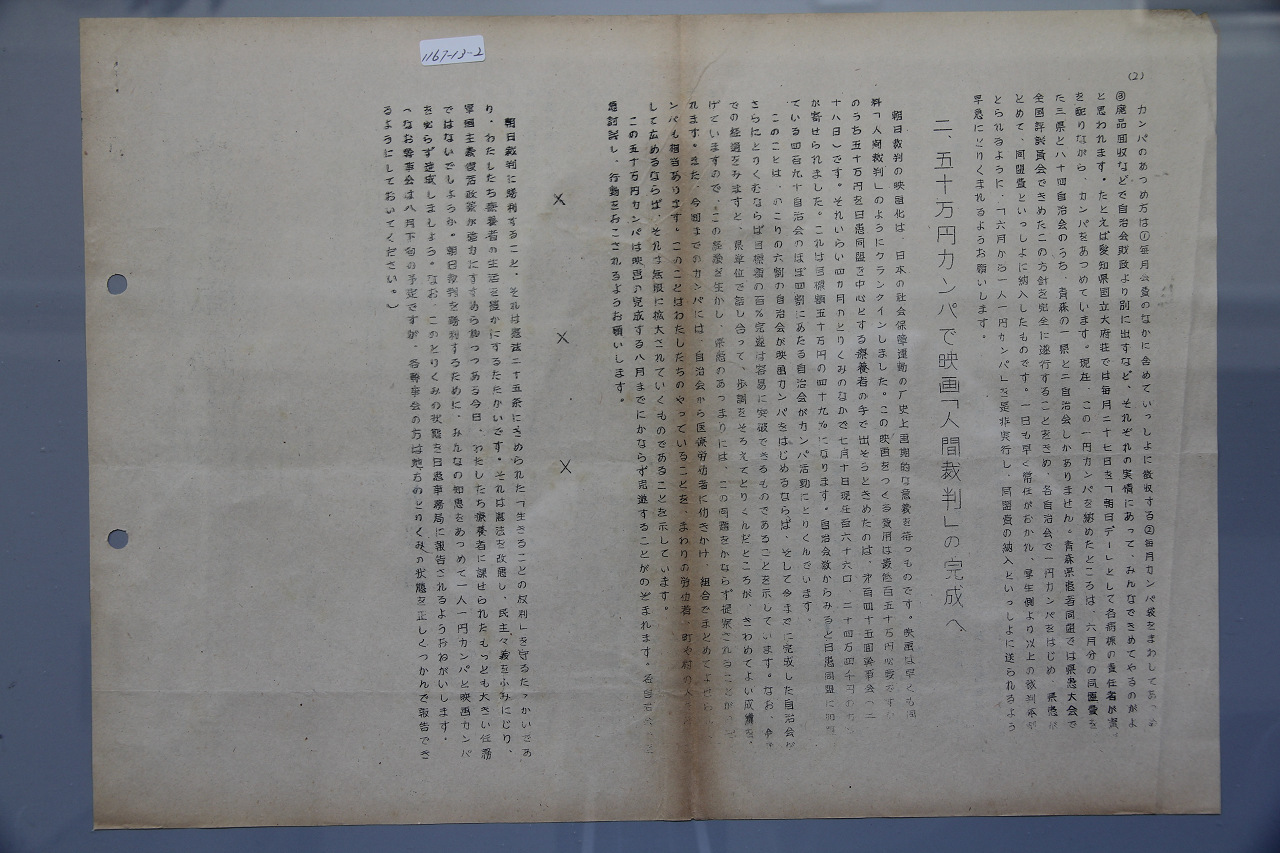 1167-13-2
(2)
カンパのあつめ方は①毎月会費のなかに含めていっしよに徴収する②毎月カンパ袋をまわしてあつめ
③廃品回収などで自治会財政より別に出すなど、それぞれの実情にあって、みんなできめてやるのがよ
と思われます。たとえば愛知県国立大府荘では毎月二十七日を「朝日デー」として各病棟の責任者が袋
を配りながら、カンパをあつめています。現在、この一円カンパを納めたところは、六月分の同盟費を
た三県と八十四自治会のうち、青森の一県と二自治会しかありません。青森県患者同盟では県患大会で
全国評議員会できめたこの方針を完全に遂行することをきめ、各自治会で一円カンパをはじめ、県患が
とめて、同盟費といっしよに納入したものです。一日も早く常任がおかれ、厚生側より以上の裁判体制が
とられるように、「六月から一人一円カンパ」を是非実行し、同盟費の納入といっしよに送られるよう
早急にとりくまれるようお願いします。
二、五十万円カンパで映画「人間裁判」の完成へ
朝日裁判の映画化は、日本の社会保障運動の厂史上画期的な意義を持つものです。映画は早くも
料「人間裁判」のようにクランクインしました。この映画をつくる費用は最低百五十万円必要ですが
のうち五十万円を日患同盟を中心とする療養者の手で出そうときめたのは、才百四十五回幹事会（二
十八日）です。それいらい四カ月のとりくみのなかで七月十日現在百六十六口、二十四万四千円のカン
が寄せられました。これは目標額五十万円の四十九％になります。自治会数からみると日患同盟に加盟
ている四百九十自治会のほぼ四割にあたる自治会がカンパ活動にとりくんでいます。
このことは、のこりの六割の自治会が映画カンパをはじめるならば、そして今までに完成した自治会が
さらにとりくむならば目標額の百％完遂は容易に突破できるものであることを示しています。なお、今ま
での経過をみますと、県単位で話し合って、歩調をそろえてとりくんだところが、きわめてよい成績を
げていますので、この経験を生かし、県患のあつまりには、この問題をかならず提案されることがのぞ
れます。また、今回までのカンパには、自治会から医療労働者に働きかけ、組合でまとめてよせられ
ンパも相当あります。このことはわたしたちのやっていることを、まわりの労働者、町や村の人
して広めるならば、それは無限に拡大されていくものであることを示しています。
この五十万円カンパは映画の完成する八月までにかならず完遂することがのぞまれます。各自治会
急討議し、行動をおこされるようお願いします。
× × ×
朝日裁判に勝利すること、それは憲法二十五条にきめられた「生きることの权利」を守るたゝかいであ
り、わたしたち療養者の生活を豊かにするたたかいです。それは憲法を改悪し、民主々義をふみにじり、
軍国主義復活政策が強力にすすめられつつある今日、わたしたち療養者に課せられたもっとも大きい任務
ではないでしょうか。朝日裁判を勝利するために、みんなの知恵をあつめて一人一円カンパと映画カンパ
をかならず達成しましょう。なお、このとりくみの状態を日患事務局に報告されるようおねがいします。
（なお幹事会は八月下旬の予定ですが、各幹事会の方は地方のとりくみの状態を正しくつかんで報告でき
るようにしておいてください。）